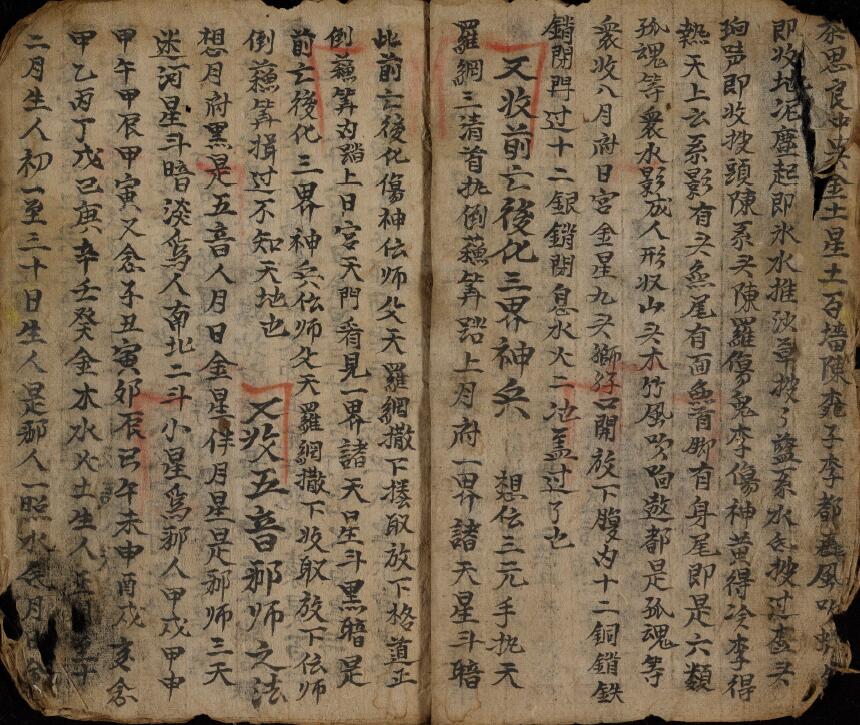 思良中央金土星土石墙陳 子李都 風吹
即收地泥塵起即氷水推沙草披了盐系水 披过 头
即收披頭陳系头陳羅傷鬼李傷神黄得冷李得
熱天上云系影有头魚尾有面魚首脚有身尾即是六類
孤魂等衆水影成人形収山头木竹風吹 都是孤魂等
衆收八月府日宫金星九头獅 口開放下腹内十二銅銷鉄
銷閉門过十二銀銷閉息水火二池盖过了也
又收前亡後化三界神兵 想伝三元手执天
羅網三清首执倒藤笄踏上月府一界諸天星斗暗
此前亡後化傷神伝师父天羅網撒下 取放下格道正
倒藤笄 踏上日宫天門看見一界諸天星斗黑暗是
前亡後化三界神兵伝师父天羅網撒下收取放下伝师
倒藤笄揖过不知天地也
又收五音邪师之法
想月府黑是五音人月日金星伴月星是邪师三天
迷河星斗暗淡爲人南北二斗小星爲邪人甲戌甲申
甲午甲辰甲寅又念子丑寅卯辰巳午未申酉戌亥念
甲乙丙丁戊己庚辛壬癸金木水火土生人正月 十
二月生人初一至三十日生人是邪人一照水